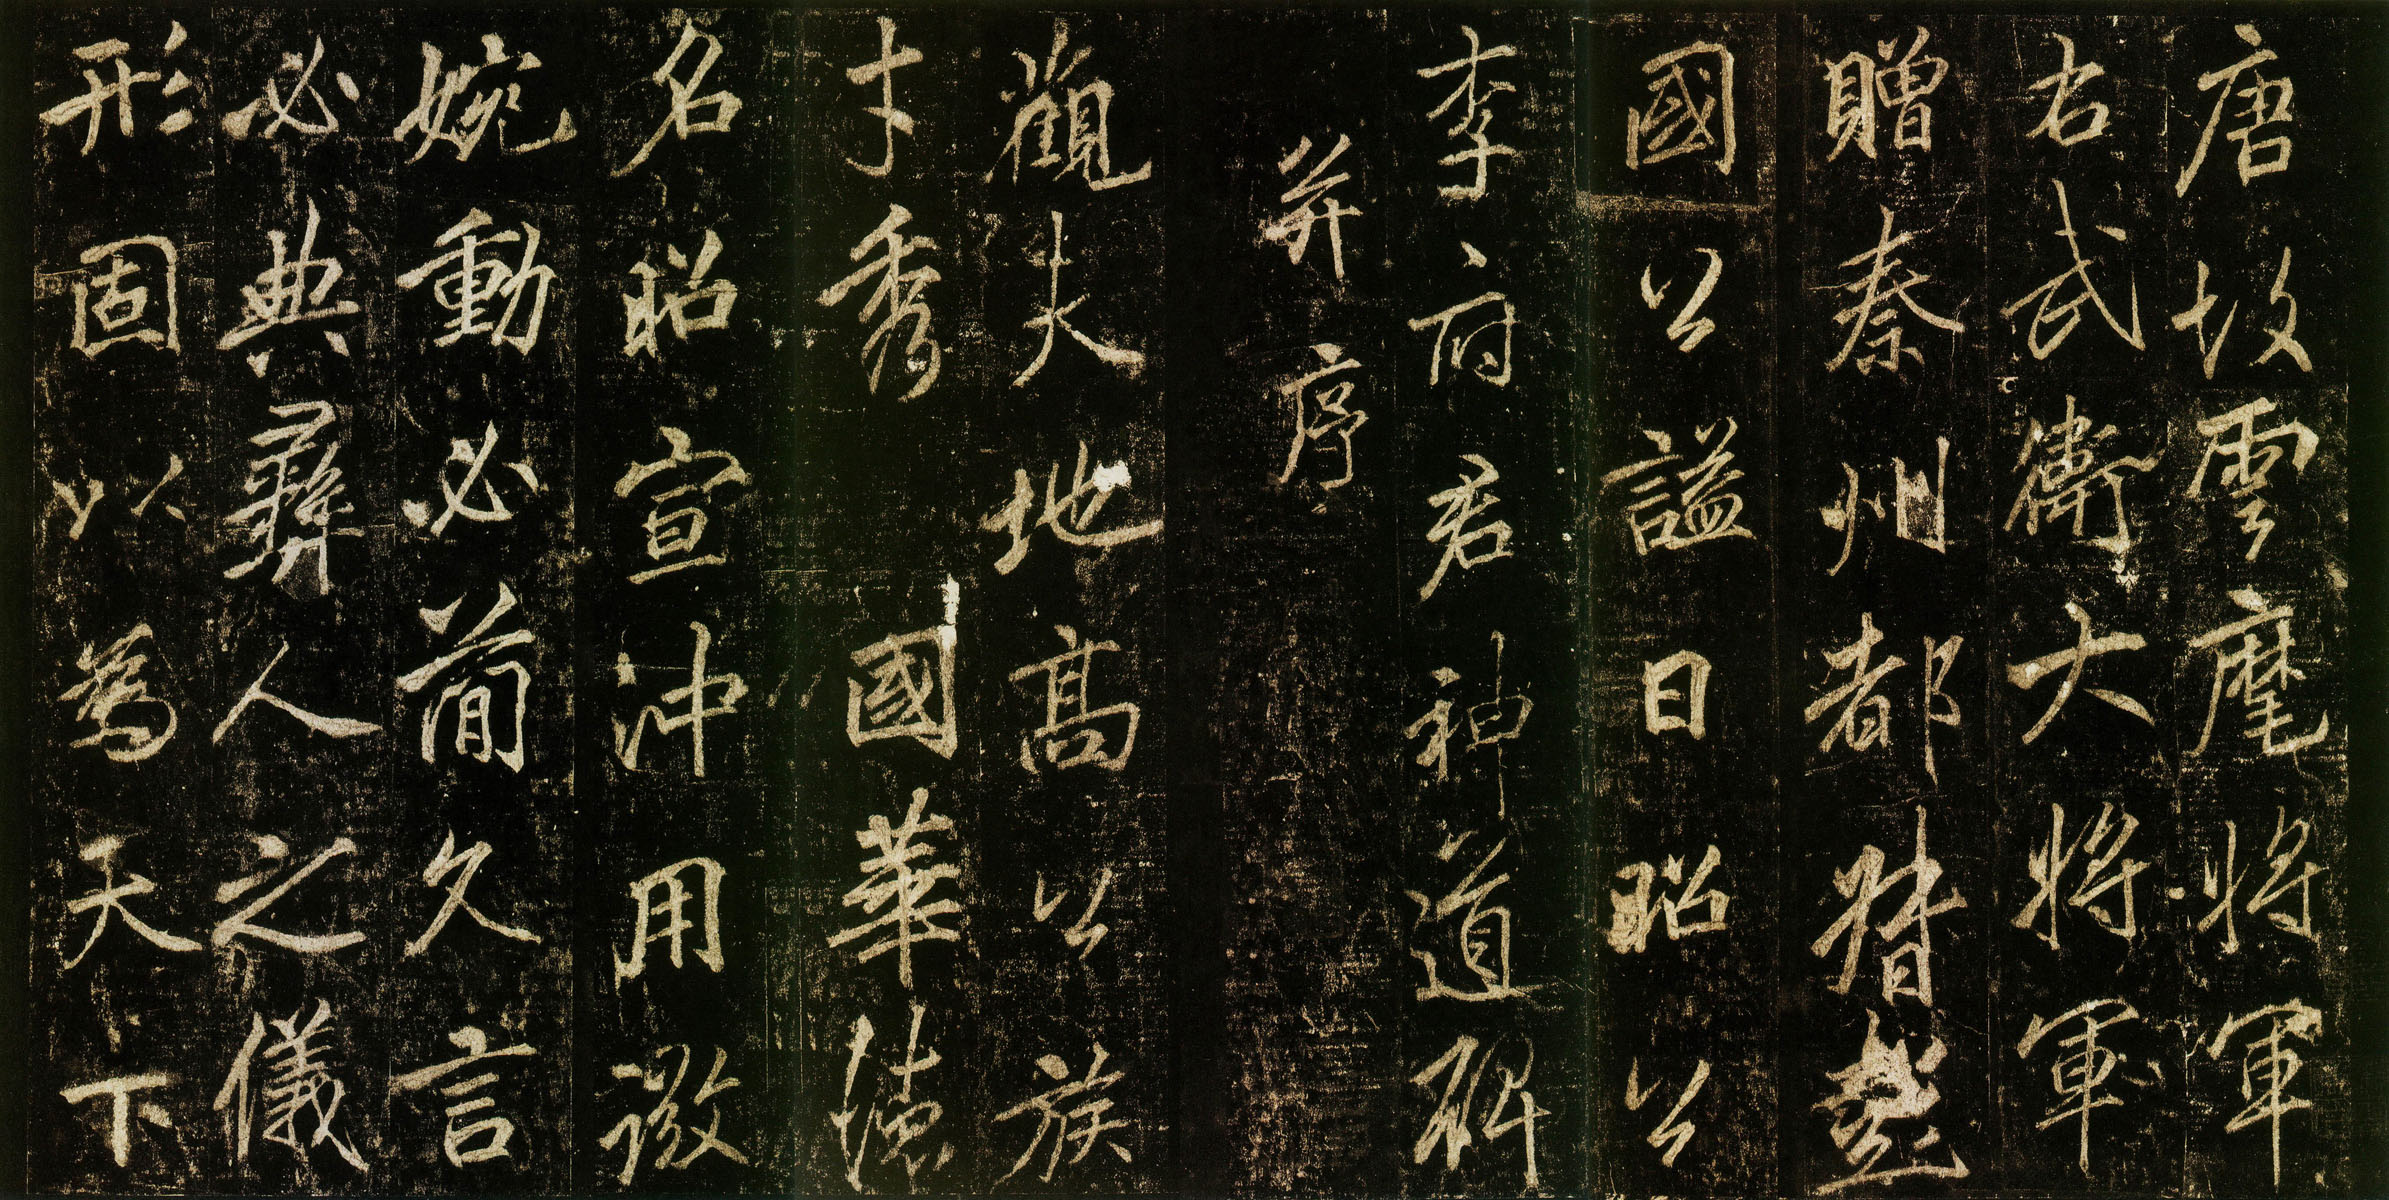 唐故雲麾將軍
右武衛大將軍
贈秦州都督彭
國公謚曰昭公
李府君神道碑
并序
觀夫地高公族
才秀國華德
名昭宣沖用微
婉動必簡久言
必典彝人之儀
形固以為天下